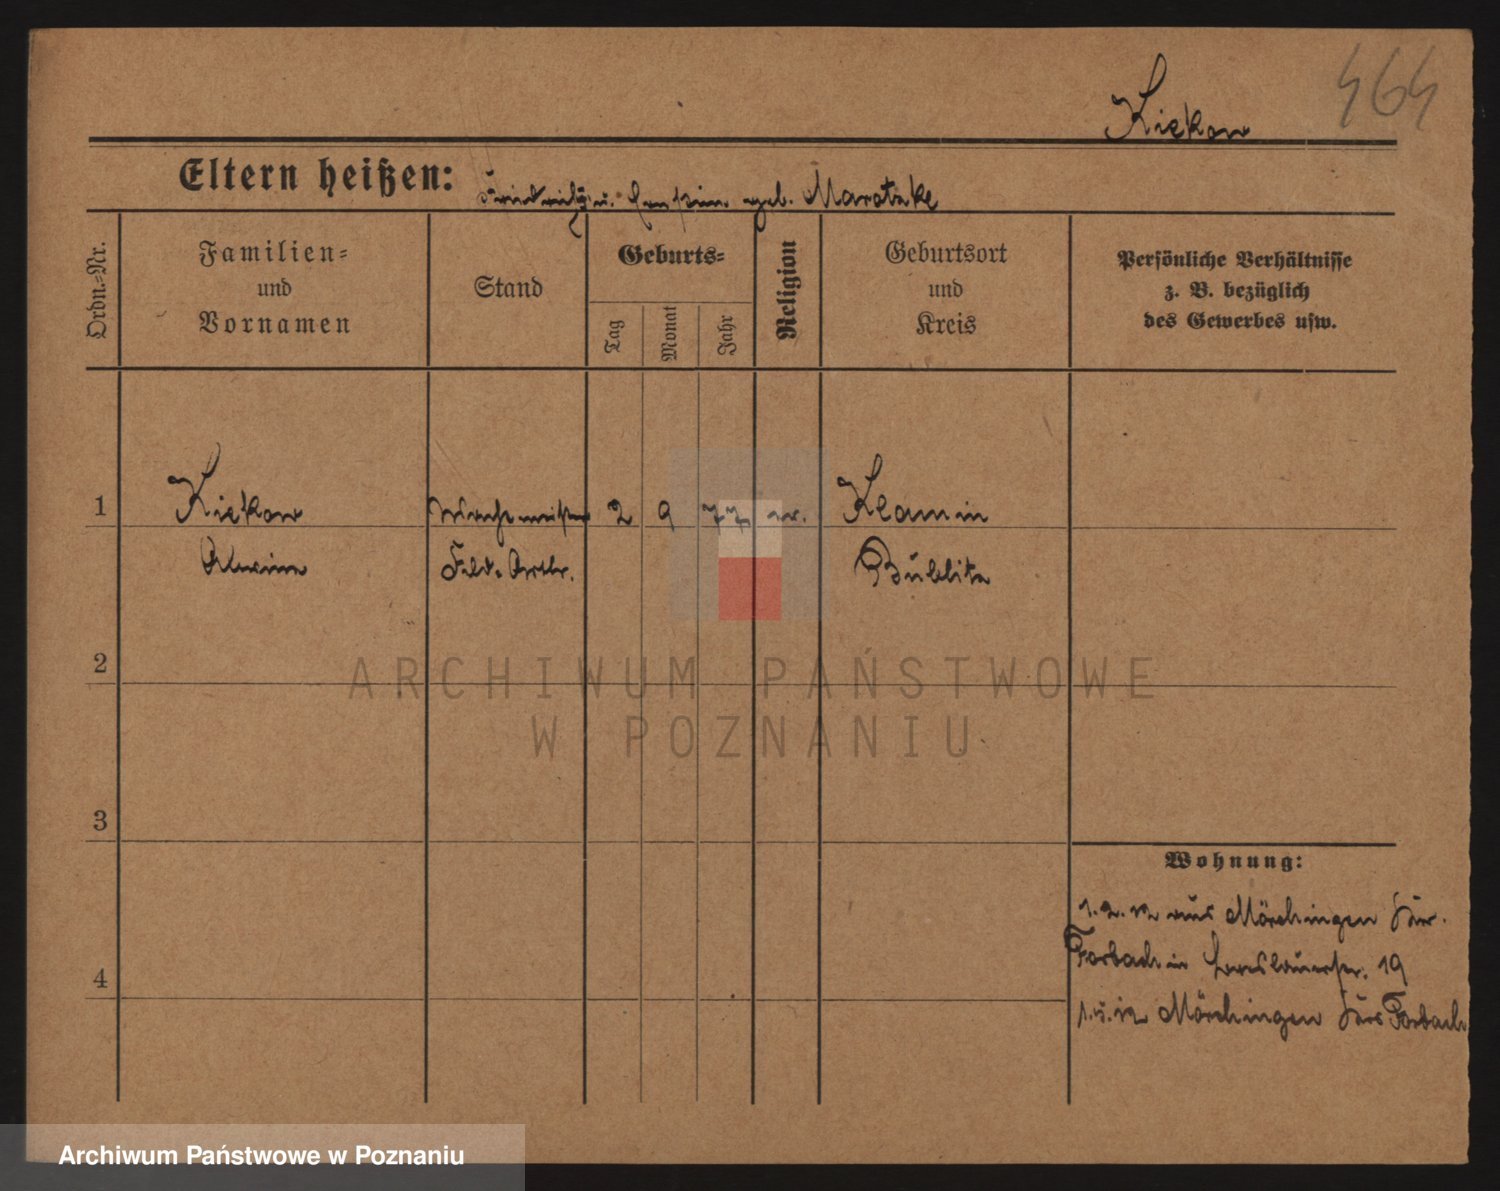 464
Kiekow
Eltern heißen: Friedrich u. geb. Maratzke
Ordn.-Nr.
Familien-
und
Vornamen
Stand
Geburts-
Tag
Monat
Jahr
Religion
Geburtsort
und
Kreis
Persönliche Verhältnisse
z. B. bezüglich
des Gewerbes usw.
1 Kiekow Wachtmeister 2 9 77 ev. Klannin
Alwin Feld. Artlr. Bublitz
2
3
4
Wohnung:
1.2.12 aus Mörchingen Kr.
Forbach in 19
12 Mörchingen Forbach
ARCHIWUM PAŃSTWOWE
W POZNANIU
Archiwum Państwowe w Poznaniu